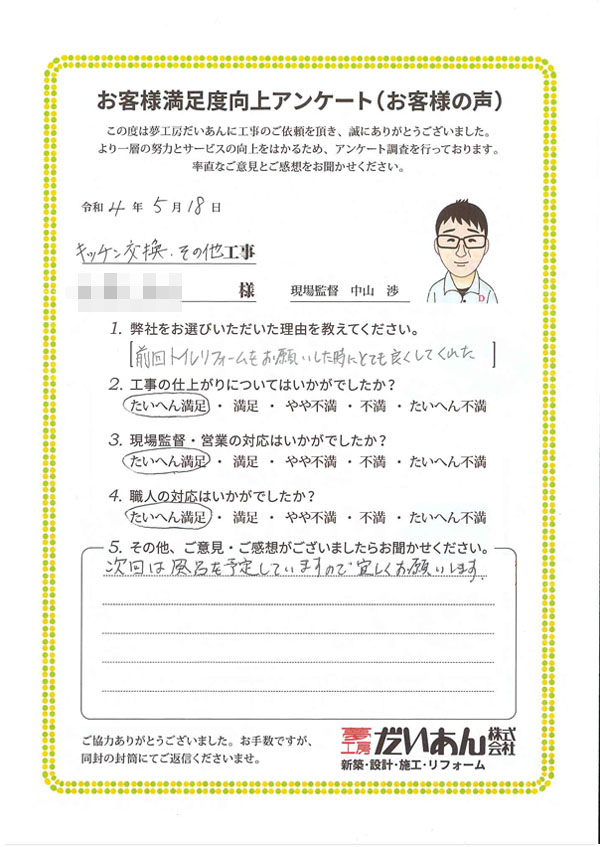 お客様満足度向上アンケート(お客様の声)
この度は夢工房だいあんに工事のご依頼を頂き、誠にありがとうございました。
より一層の努力とサービスの向上をはかるため、アンケート調査を行っております。
率直なご意見とご感想をお聞かせください。
令和 4 年 5 月 18 日
キッチン交換.その他工事
様 現場監督 中山 渉
D
1. 弊社をお選びいただいた理由を教えてください。
[前回トイレリフォームをお願いした時にとても良くしてくれた]
2. 工事の仕上がりについてはいかがでしたか?
たいへん満足 ・ 満足 ・ やや不満 ・ 不満 ・ たいへん不満
3. 現場監督・営業の対応はいかがでしたか?
たいへん満足 ・ 満足 ・ やや不満 ・ 不満 ・ たいへん不満
4. 職人の対応はいかがでしたか?
たいへん満足 ・ 満足 ・ やや不満 ・ 不満 ・ たいへん不満
5. その他、ご意見・ご感想がございましたらお聞かせください。
次回は風呂を予定していますので宜しくお願いします.
ご協力ありがとうございました。お手数ですが、
同封の封筒にてご返信くださいませ。
夢工房だいあん株式会社
新築・設計・施工・リフォーム